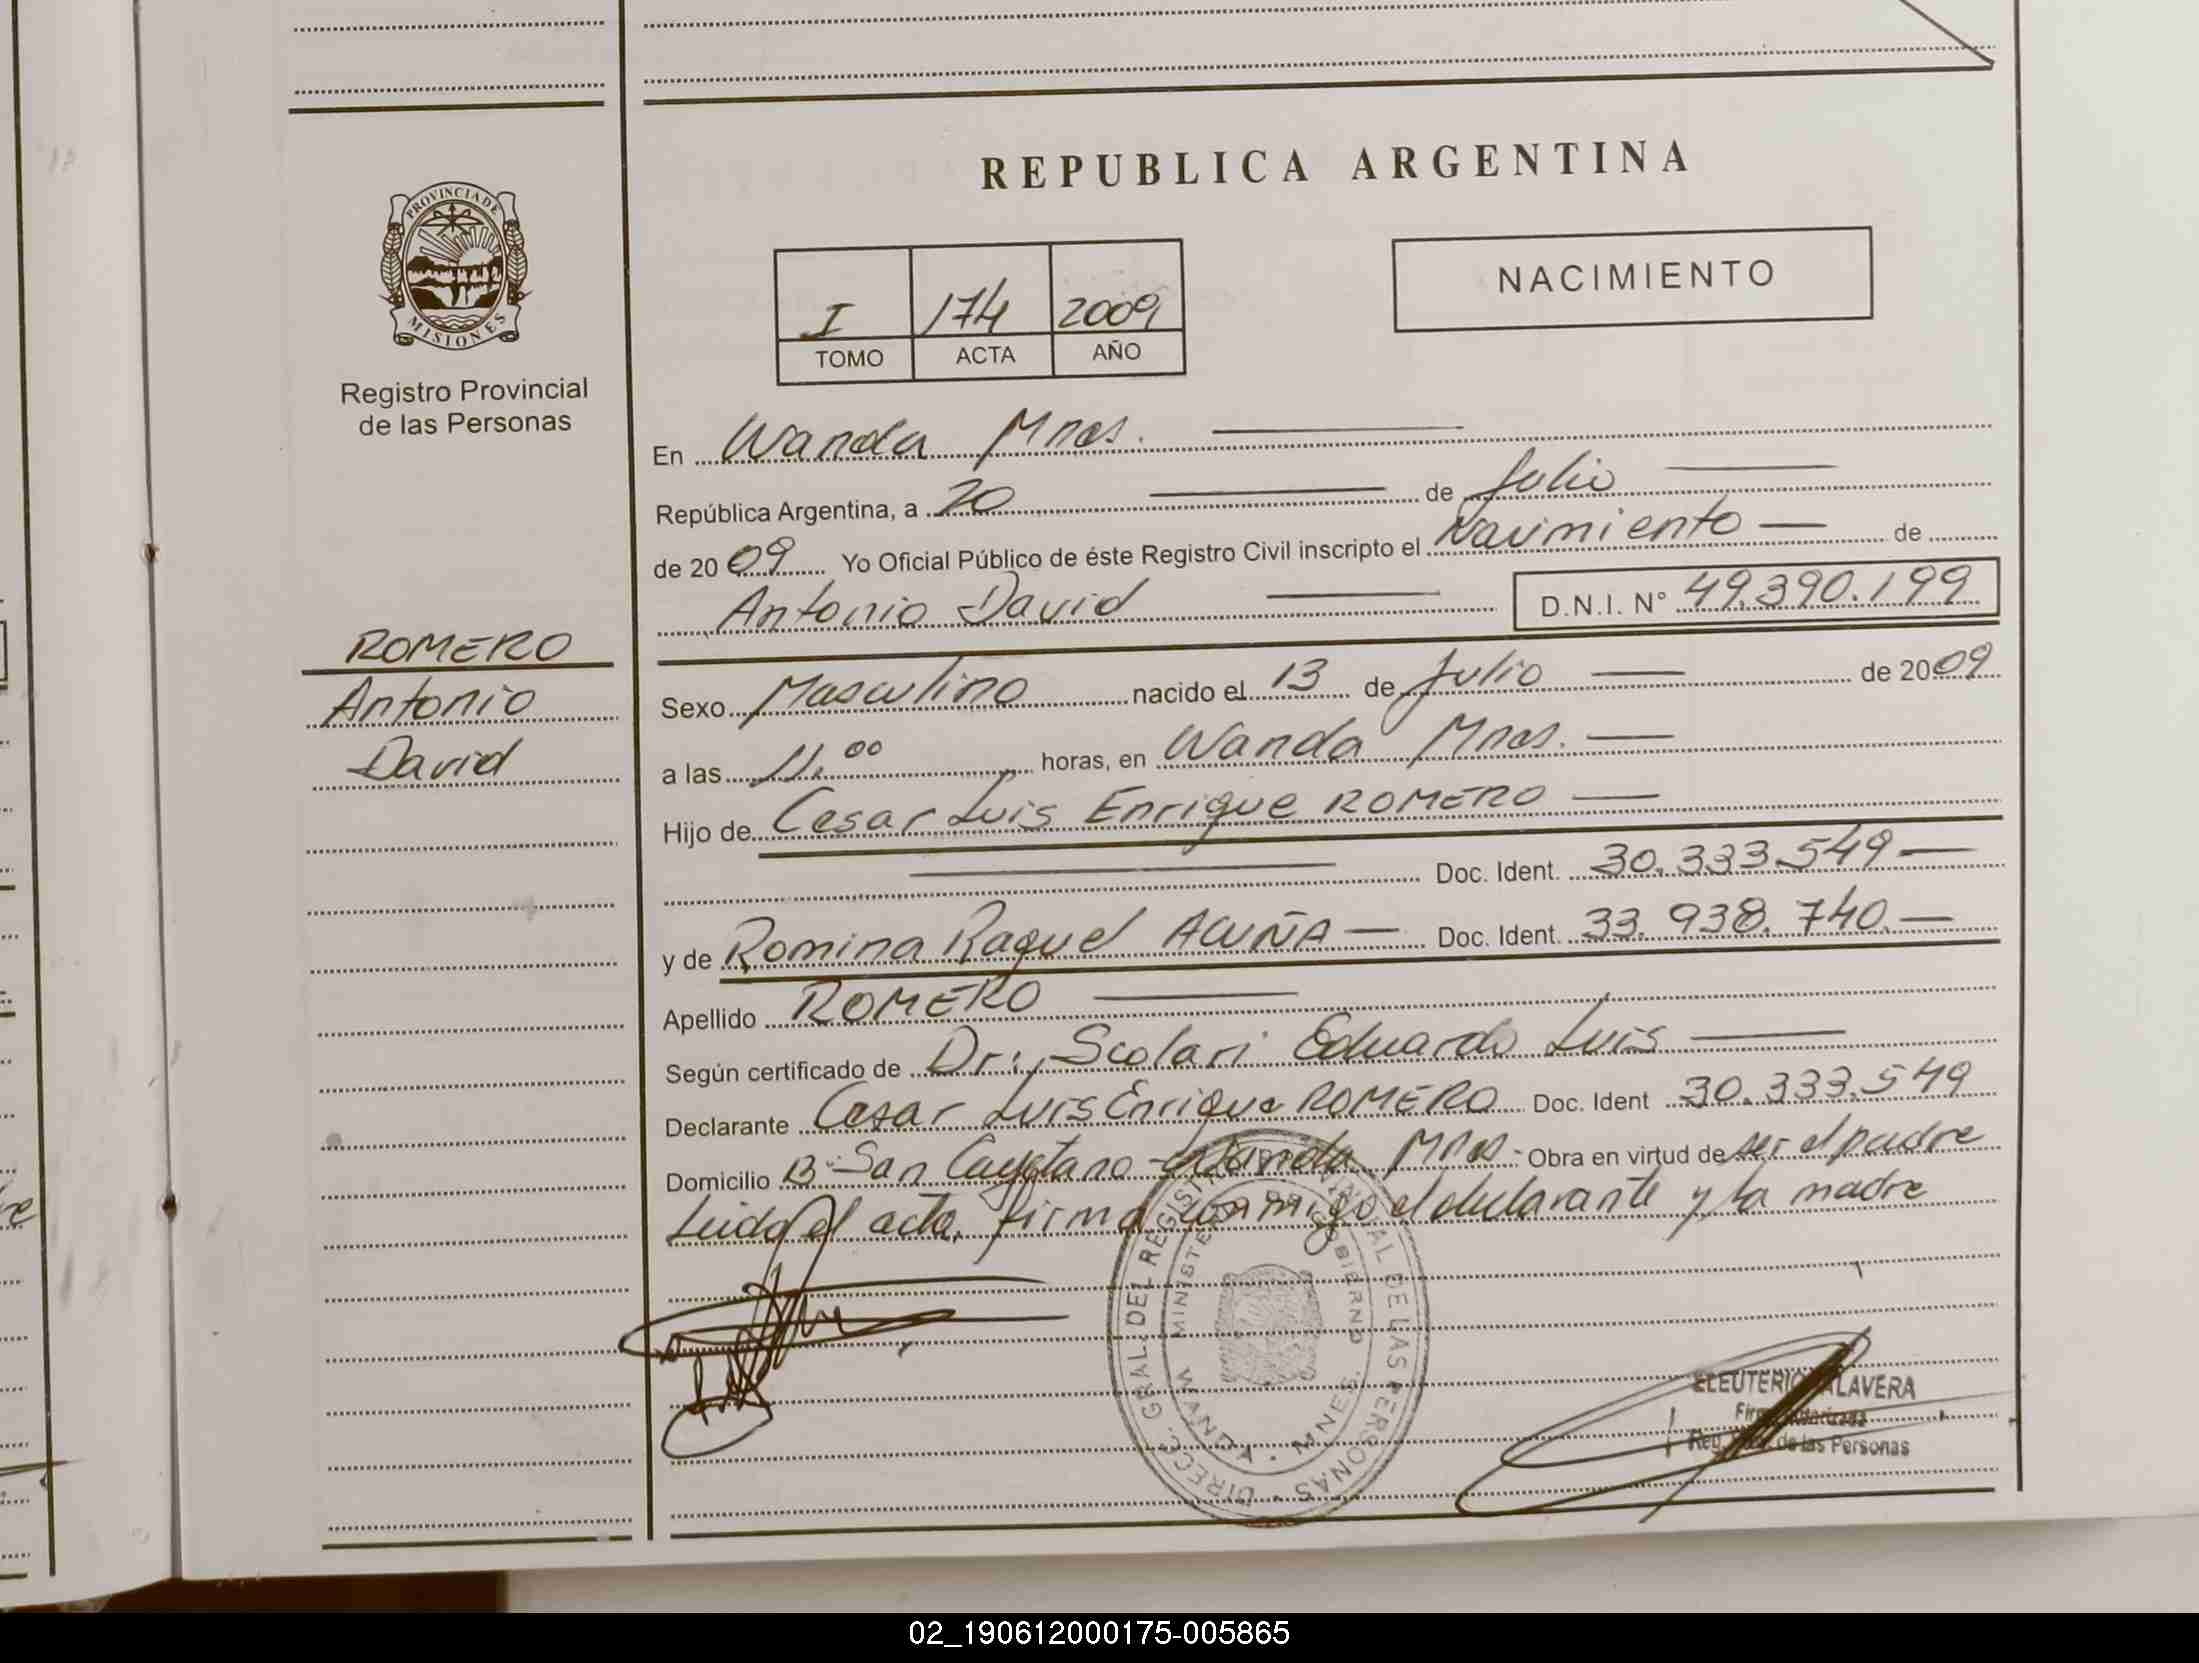 PROVINCIA DE
MISIONES
Registro Provincial
de las Personas
ROMERO
Antonio
David
REPUBLICA ARGENTINA
I 174 2009
TOMO ACTA AÑO
NACIMIENTO
En Wanda Mnes.
República Argentina, a 20 de Julio
de 2009 Yo Oficial Público de éste Registro Civil inscripto el Nacimiento de
Antonio David D.N.I. N° 49.390.199
Sexo Masculino nacido el 13 de Julio de 2009
a las 11,00 horas, en Wanda Mnes.
Hijo de Cesar Luis Enrique ROMERO
Doc. Ident. 30.333.549
y de Romina Raquel ACUÑA Doc. Ident. 33.938.740.
Apellido ROMERO
Según certificado de Dr: Scolari Eduardo Luis
Declarante Cesar Luis Enrique ROMERO Doc. Ident 30.333.549
Domicilio B° San Cayetano - Wanda Mnes - Obra en virtud de ser el padre
Leida el acta, firma conmigo el declarante y la madre
DIRECC. GRAL. DEL REGISTRO PROVINCIAL DE LAS PERSONAS
MINISTERIO DE GOBIERNO
WANDA - MNES.
ELEUTERIO TALAVERA
Firma Autorizada
Reg. de las Personas
02_190612000175-005865